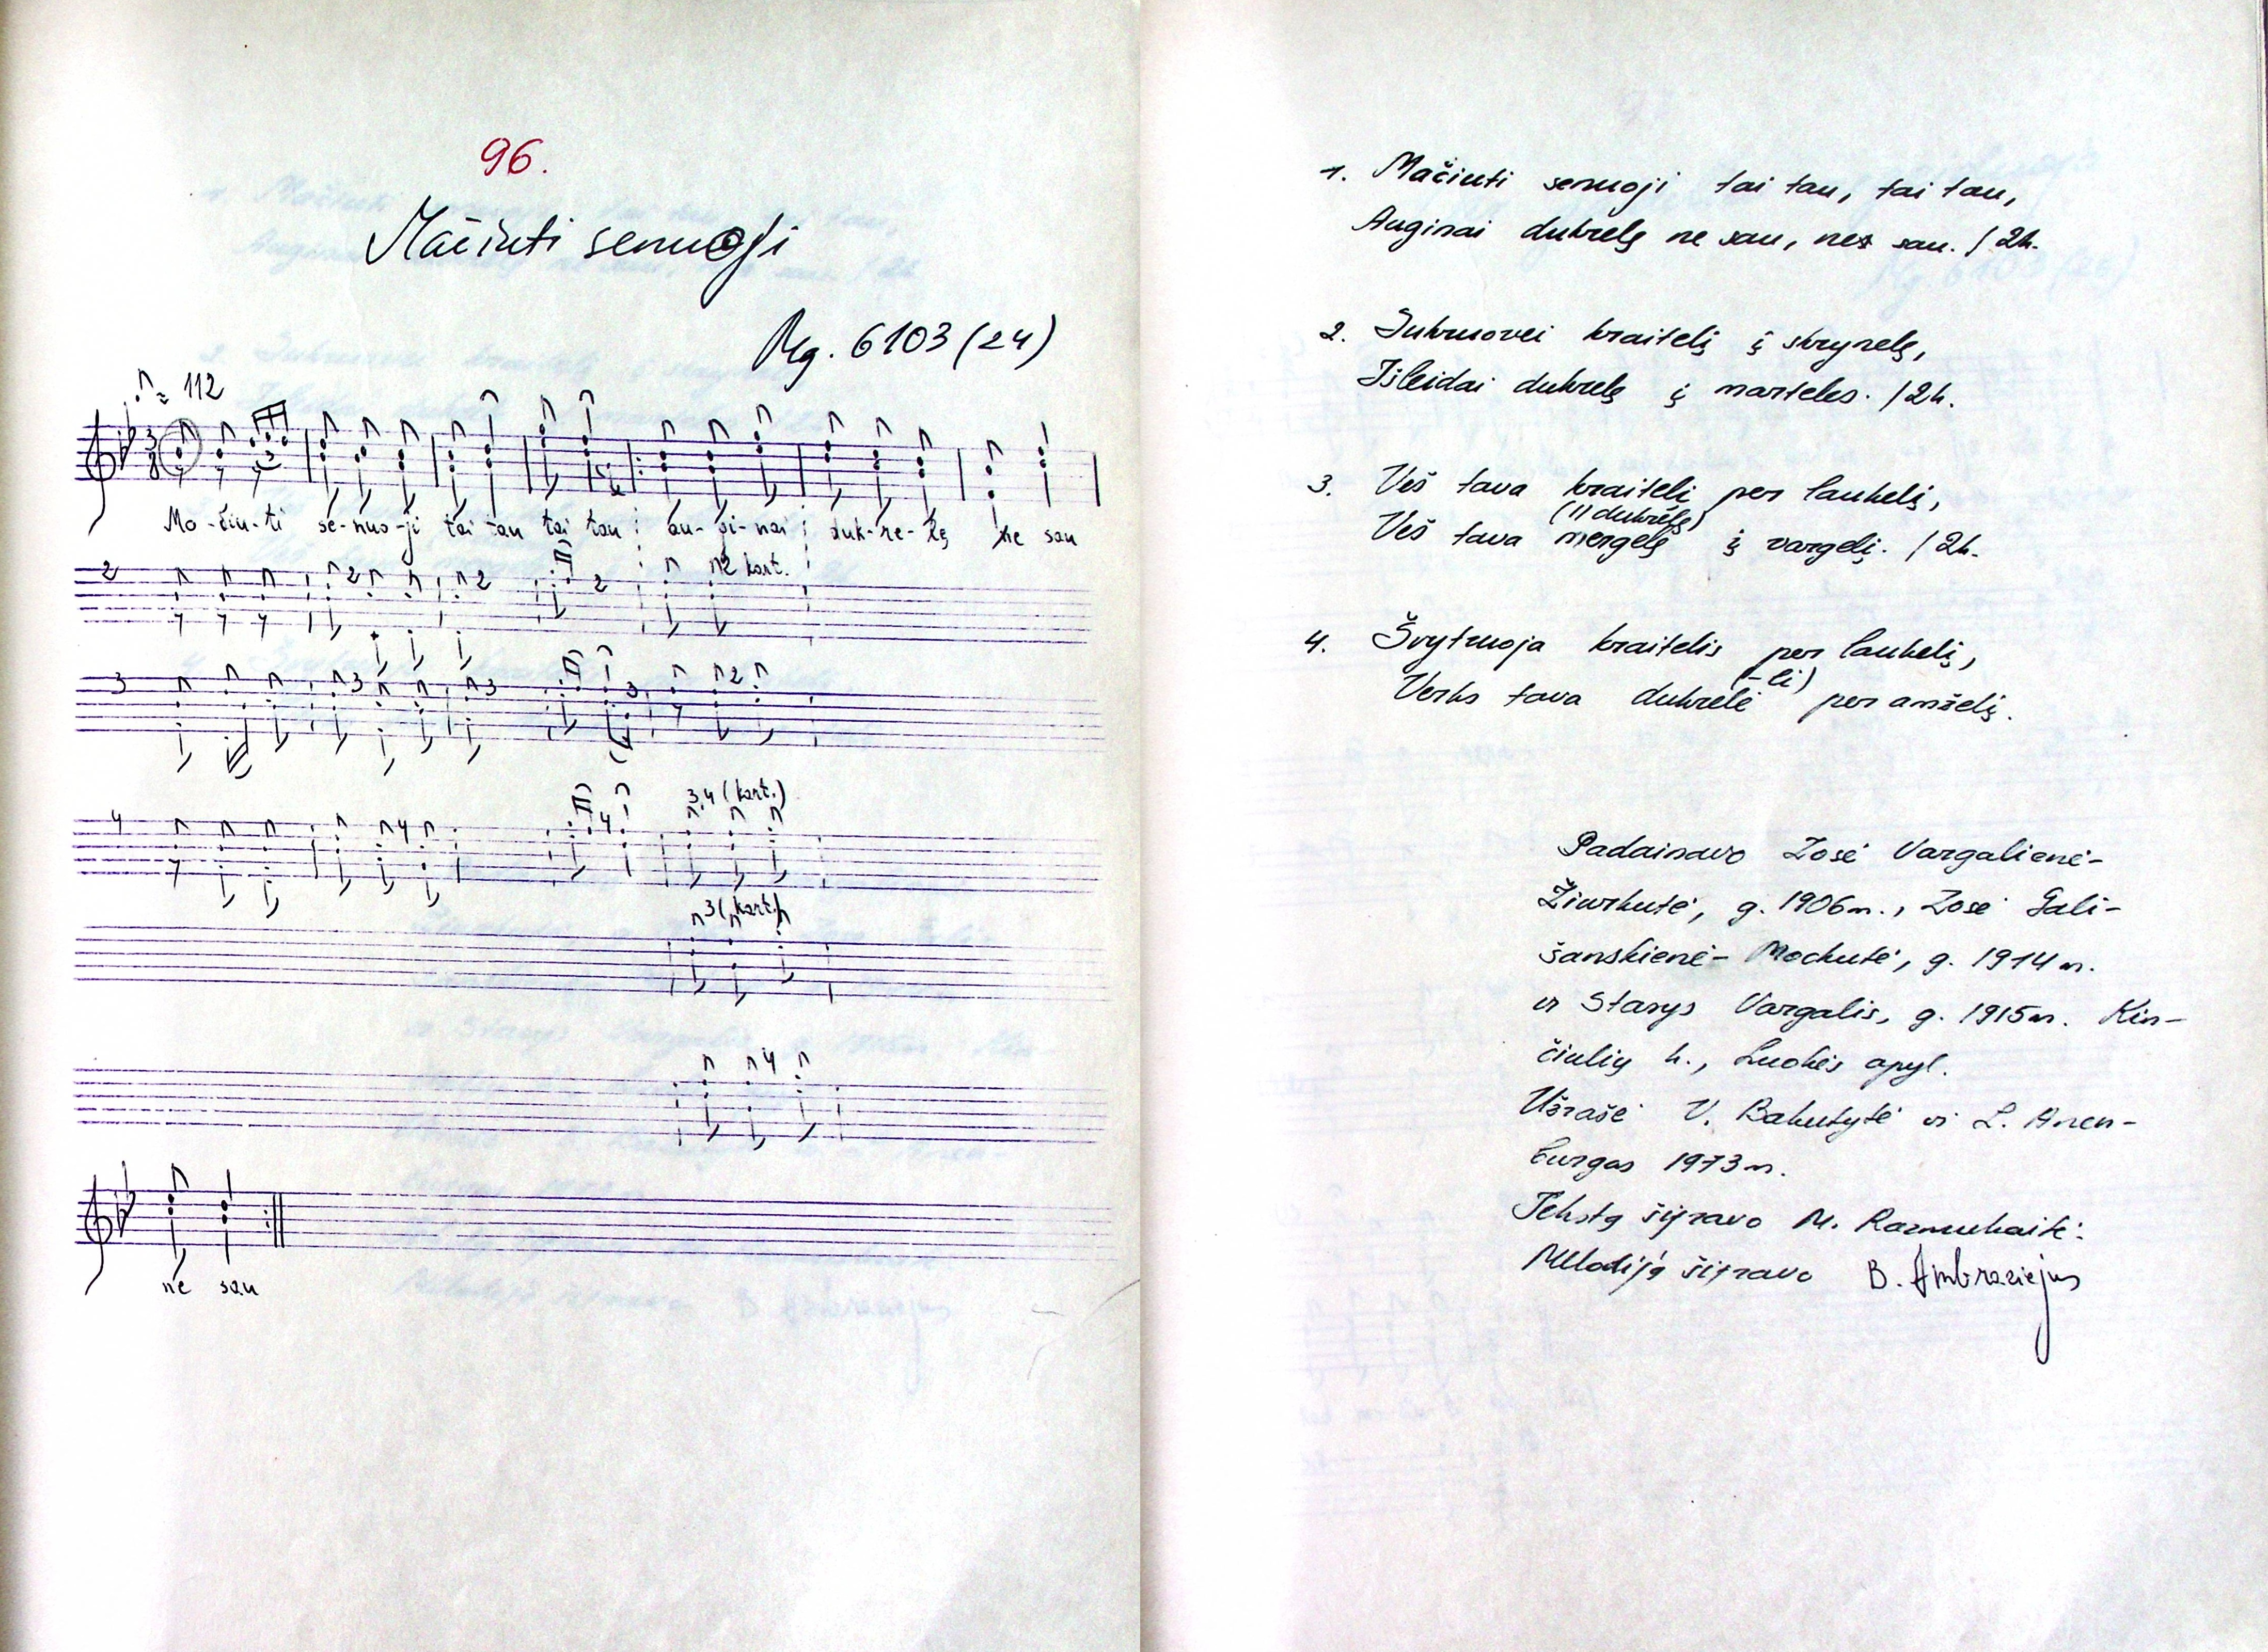 96.
Mačiuti senuoji
Mg. 6103 (24)
= 112
3
8
Mo-čiu-ti se-nuo-ji tai tau tai tau au-gi-nai duk-re-lę ne sau
2 2 2 2 2 kart.
3 3 3 3 2
4 4 4 3,4 (kart.)
3 (kart.)
4
ne sau
1. Mačiuti senuoji tai tau, tai tau,
Auginai dukrelę ne sau, ne sau. / 2k.
2. Sukruovei kraitelį į skrynelę,
Išleidai dukrelę į marteles. / 2k.
3. Veš tava kraitelį per laukelį,
(11 dukrelę)
Veš tava mergelę į vargelį. / 2k.
4. Švytruoja kraitelis per laukelį,
(-li)
Verks tava dukrelė per amželį.
Padainavo Zosė Vargalienė-
Žiurkutė, g. 1906 m., Zosė Gali-
šanskienė- Mockutė, g. 1914 m.
ir Stasys Vargalis, g. 1915 m. Kin-
čiulių k., Luokės apyl.
Užrašė V. Bakutytė ir L. Anen-
burgas 1973 m.
Tekstą šifravo M. Razmukaitė.
Melodiją šifravo B. Ambraziejus